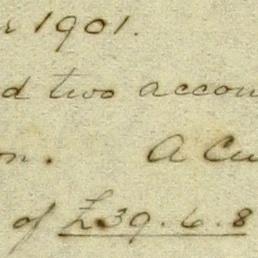 r 1901.
d two accou
on. A Cu
of £39.6.8